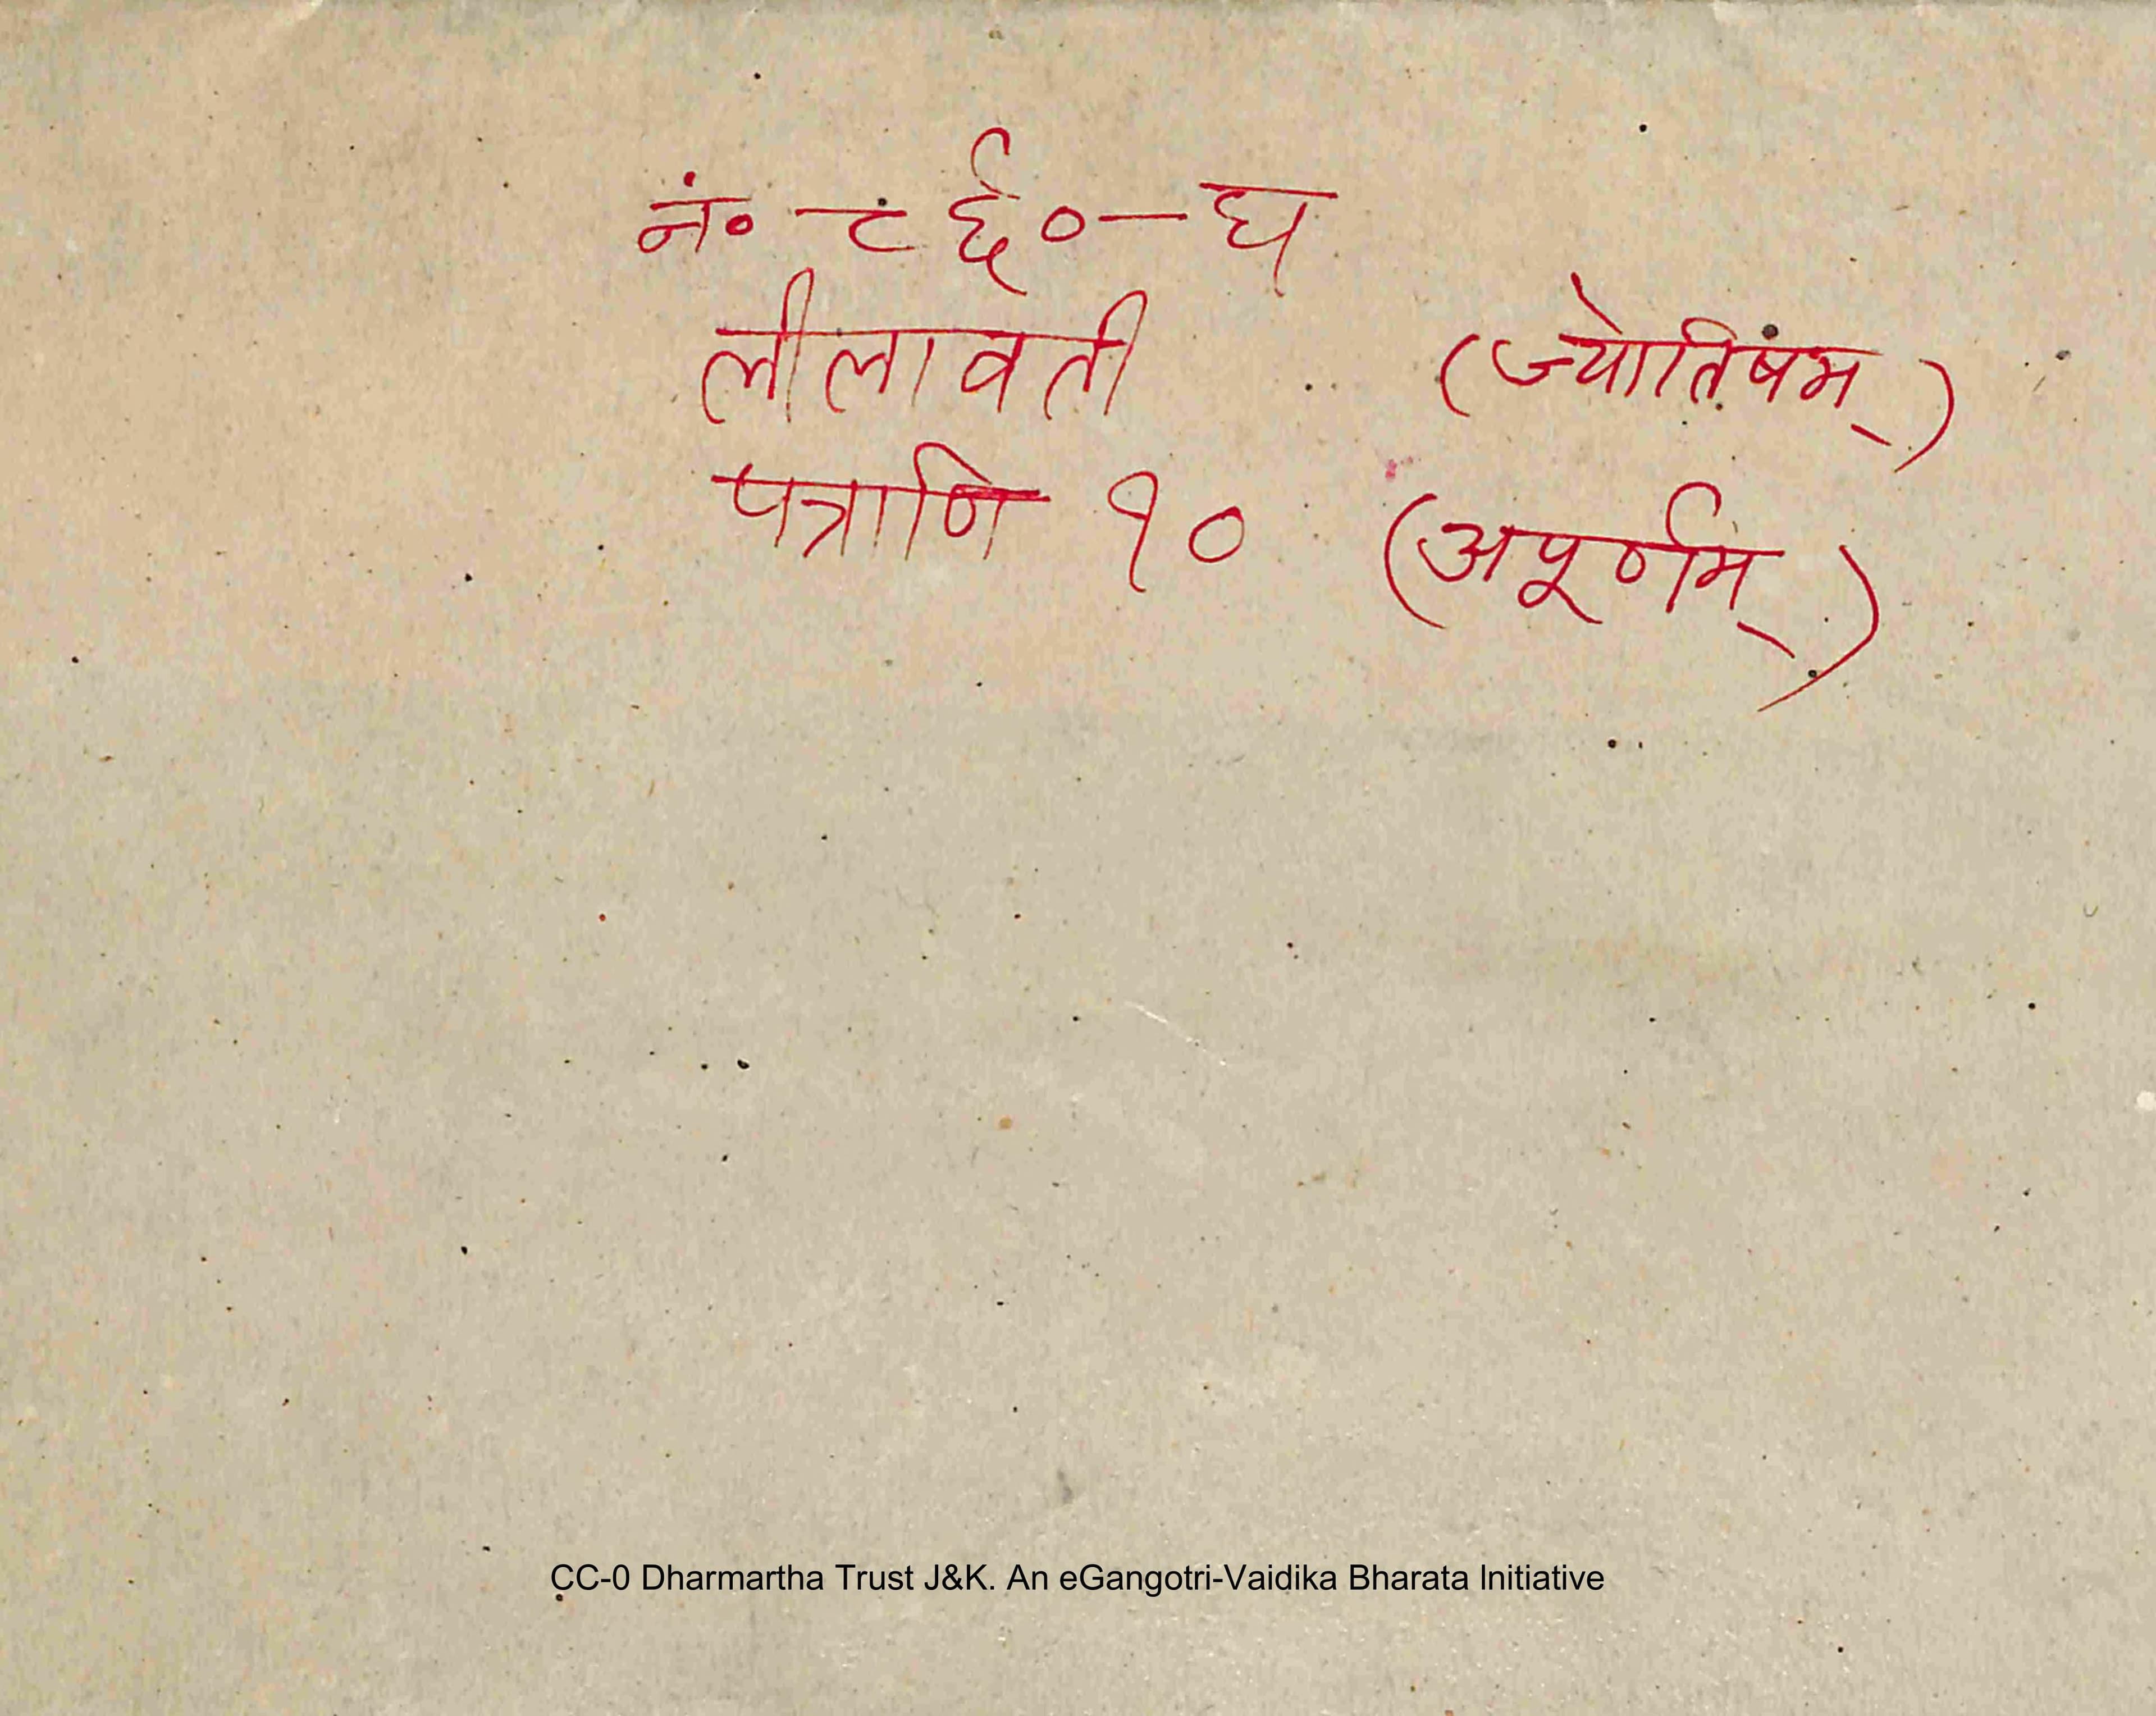 नं० ८६०-घ
लीलावती (ज्योतिषम्)
पत्राणि १० (अपूर्णम्)
CC-0 Dharmartha Trust J&K. An eGangotri-Vaidika Bharata Initiative